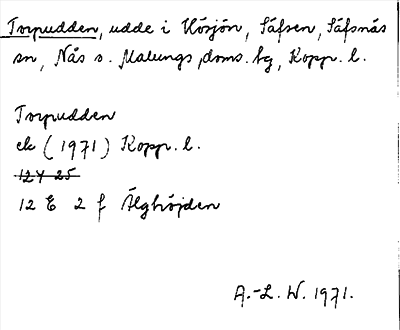 Torpudden, udde i Hösjön, Säfsen, Säfsnäs
sn, Nås o. Malungs doms. hg, Kopp. l.
Torpudden
ek (1971) Kopp. l.
12Y 25
12 E 2 f Älghöjden
A.-L. W. 1971.